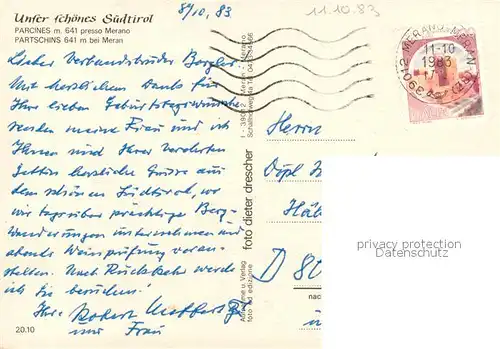 Unser schönes Südtirol
PARCINES m. 641 presso Merano
PARTSCHINS 641 m bei Meran
8/10. 83
11.10.83
39012 MERANO - MERAN
11-10
1983
Lieber Verbandsbruder
Mit herzlichem Dank für
Ihre lieben Geburtstagswünsche
senden meine Frau und ich
Ihnen und Ihrer verehrten
Gattin herzliche Grüße aus
dem schönen Südtirol, wo
wir tagsüber prächtige Berg-
wanderungen unternehmen und
abends Weinprüfung veran-
stalten. Nach Rückkehr werde
ich Sie besuchen!
Ihr Robert
und Frau
20.10
Adreßtume u. Verlag
foto ed edizione
foto dieter drescher
I - 39012 Meran - Merano
Herrn
Dipl
D 80
privacy protection
Datenschutz